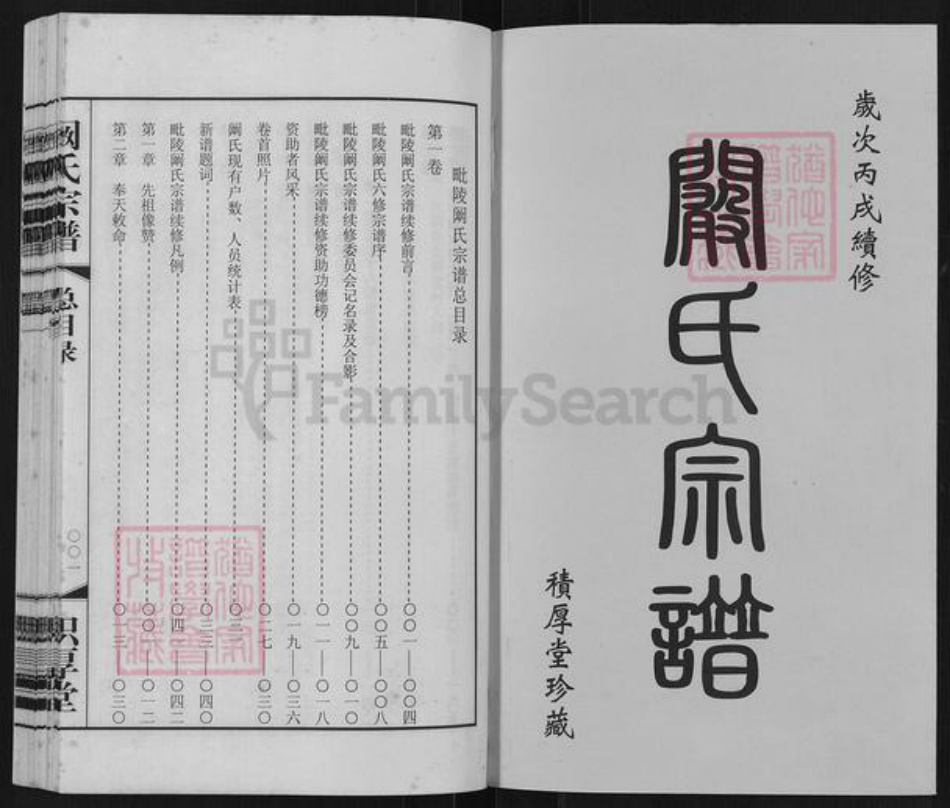 歲次丙戌續修
闞氏宗譜
積厚堂珍藏
毗陵阚氏宗谱总目录
第一卷
毗陵阚氏宗谱续修前言 〇〇一——〇〇四
毗陵阚氏六修宗谱序 〇〇五——〇〇八
毗陵阚氏宗谱续修委员会记名录及合影 〇〇九——〇一〇
毗陵阚氏宗谱续修资助功德榜 〇一一——〇一八
资助者风采 〇一九——〇三六
卷首照片 〇二七——〇三〇
阚氏现有户数、人员统计表 〇三二
新谱题词 〇三三——〇四〇
毗陵阚氏宗谱续修凡例 〇四一——〇四二
第一章 先祖像赞 〇〇一——〇一二
第二章 奉天敕命 〇一三——〇三〇
阚氏宗谱
总目录
〇〇一
FamilySearch